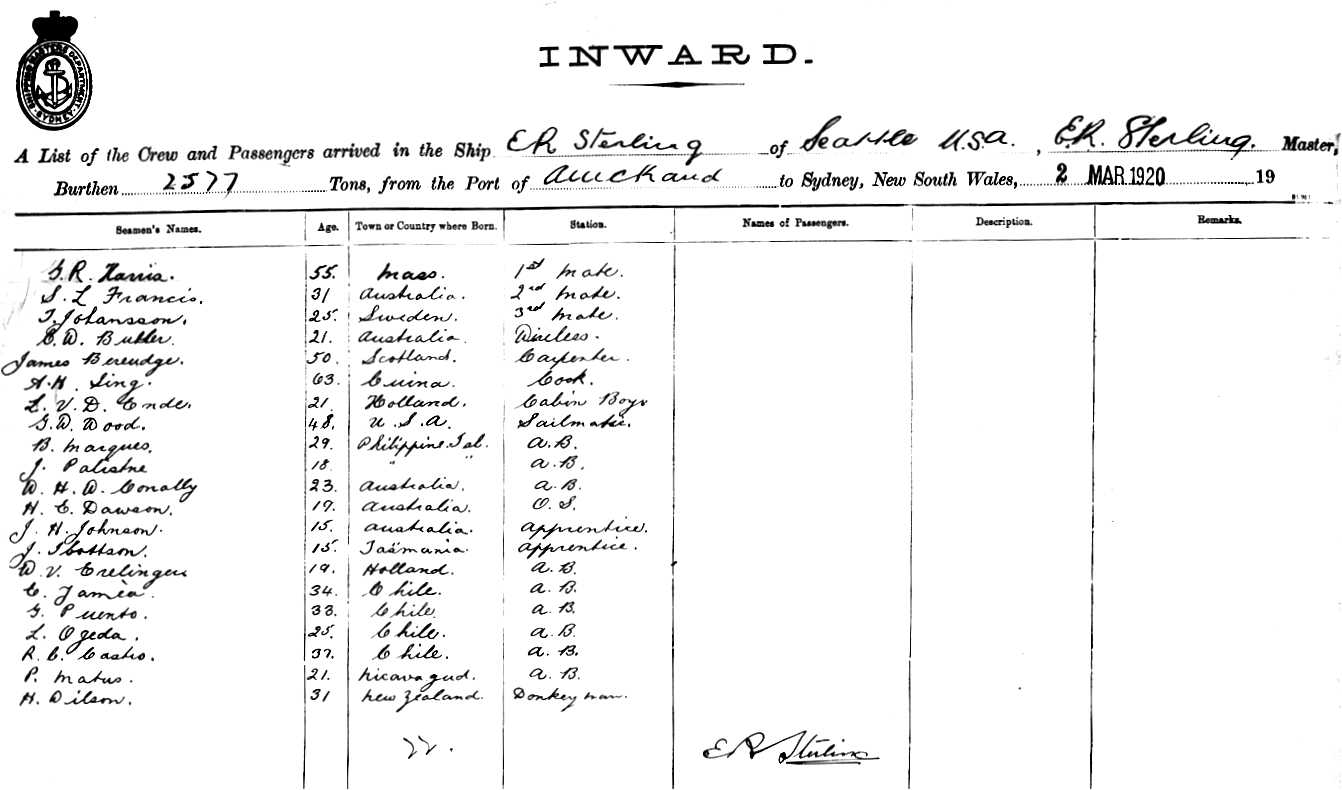 SHIPPING MASTERS DEPARTMENT · SYDNEY ·
INWARD.
A List of the Crew and Passengers arrived in the Ship ER Sterling of Seattle U.S.A. , E.R. Sterling. Master,
Burthen 2577 Tons, from the Port of Auckand to Sydney, New South Wales, 2 MAR 1920 19
Seamen's Names. Age. Town or Country where Born. Station. Names of Passengers. Description. Remarks.
G.R. Harris. 55. Mass. 1st Mate.
S. L Francis. 31 Australia. 2nd Mate.
T. Johansson. 25. Sweden. 3rd Mate.
C. W. Butler. 21. Australia. Wireless.
James Bereudge. 50. Scotland. Carpenter.
A.H. Sing. 63. Cuina. Cook.
L. V. D. Ende. 21. Holland. Cabin Boy
G. W. Wood. 48. U. S. A. Sailmaker.
B. Marques. 29. Philippine Isl. A.B.
J. Palistne 18 " " A.B.
W. H. W. Conally 23. Australia. A.B.
H. C. Dawson. 19. Australia. O. S.
J. H. Johnson. 15. Australia. Apprentice.
J. Ibottson. 15. Tasmania. Apprentice.
W. V. 19. Holland. A. B.
C. 34. Chile. A. B.
G. Puento. 33. Chile A. B.
L. Ogeda. 25. Chile. A. B.
R. C. Castro. 37. Chile. A. B.
P. Matus. 21. Nicavagud. A. B.
H. Wilson. 31 New Zealand. Donkeyman.
22. ER Sterling